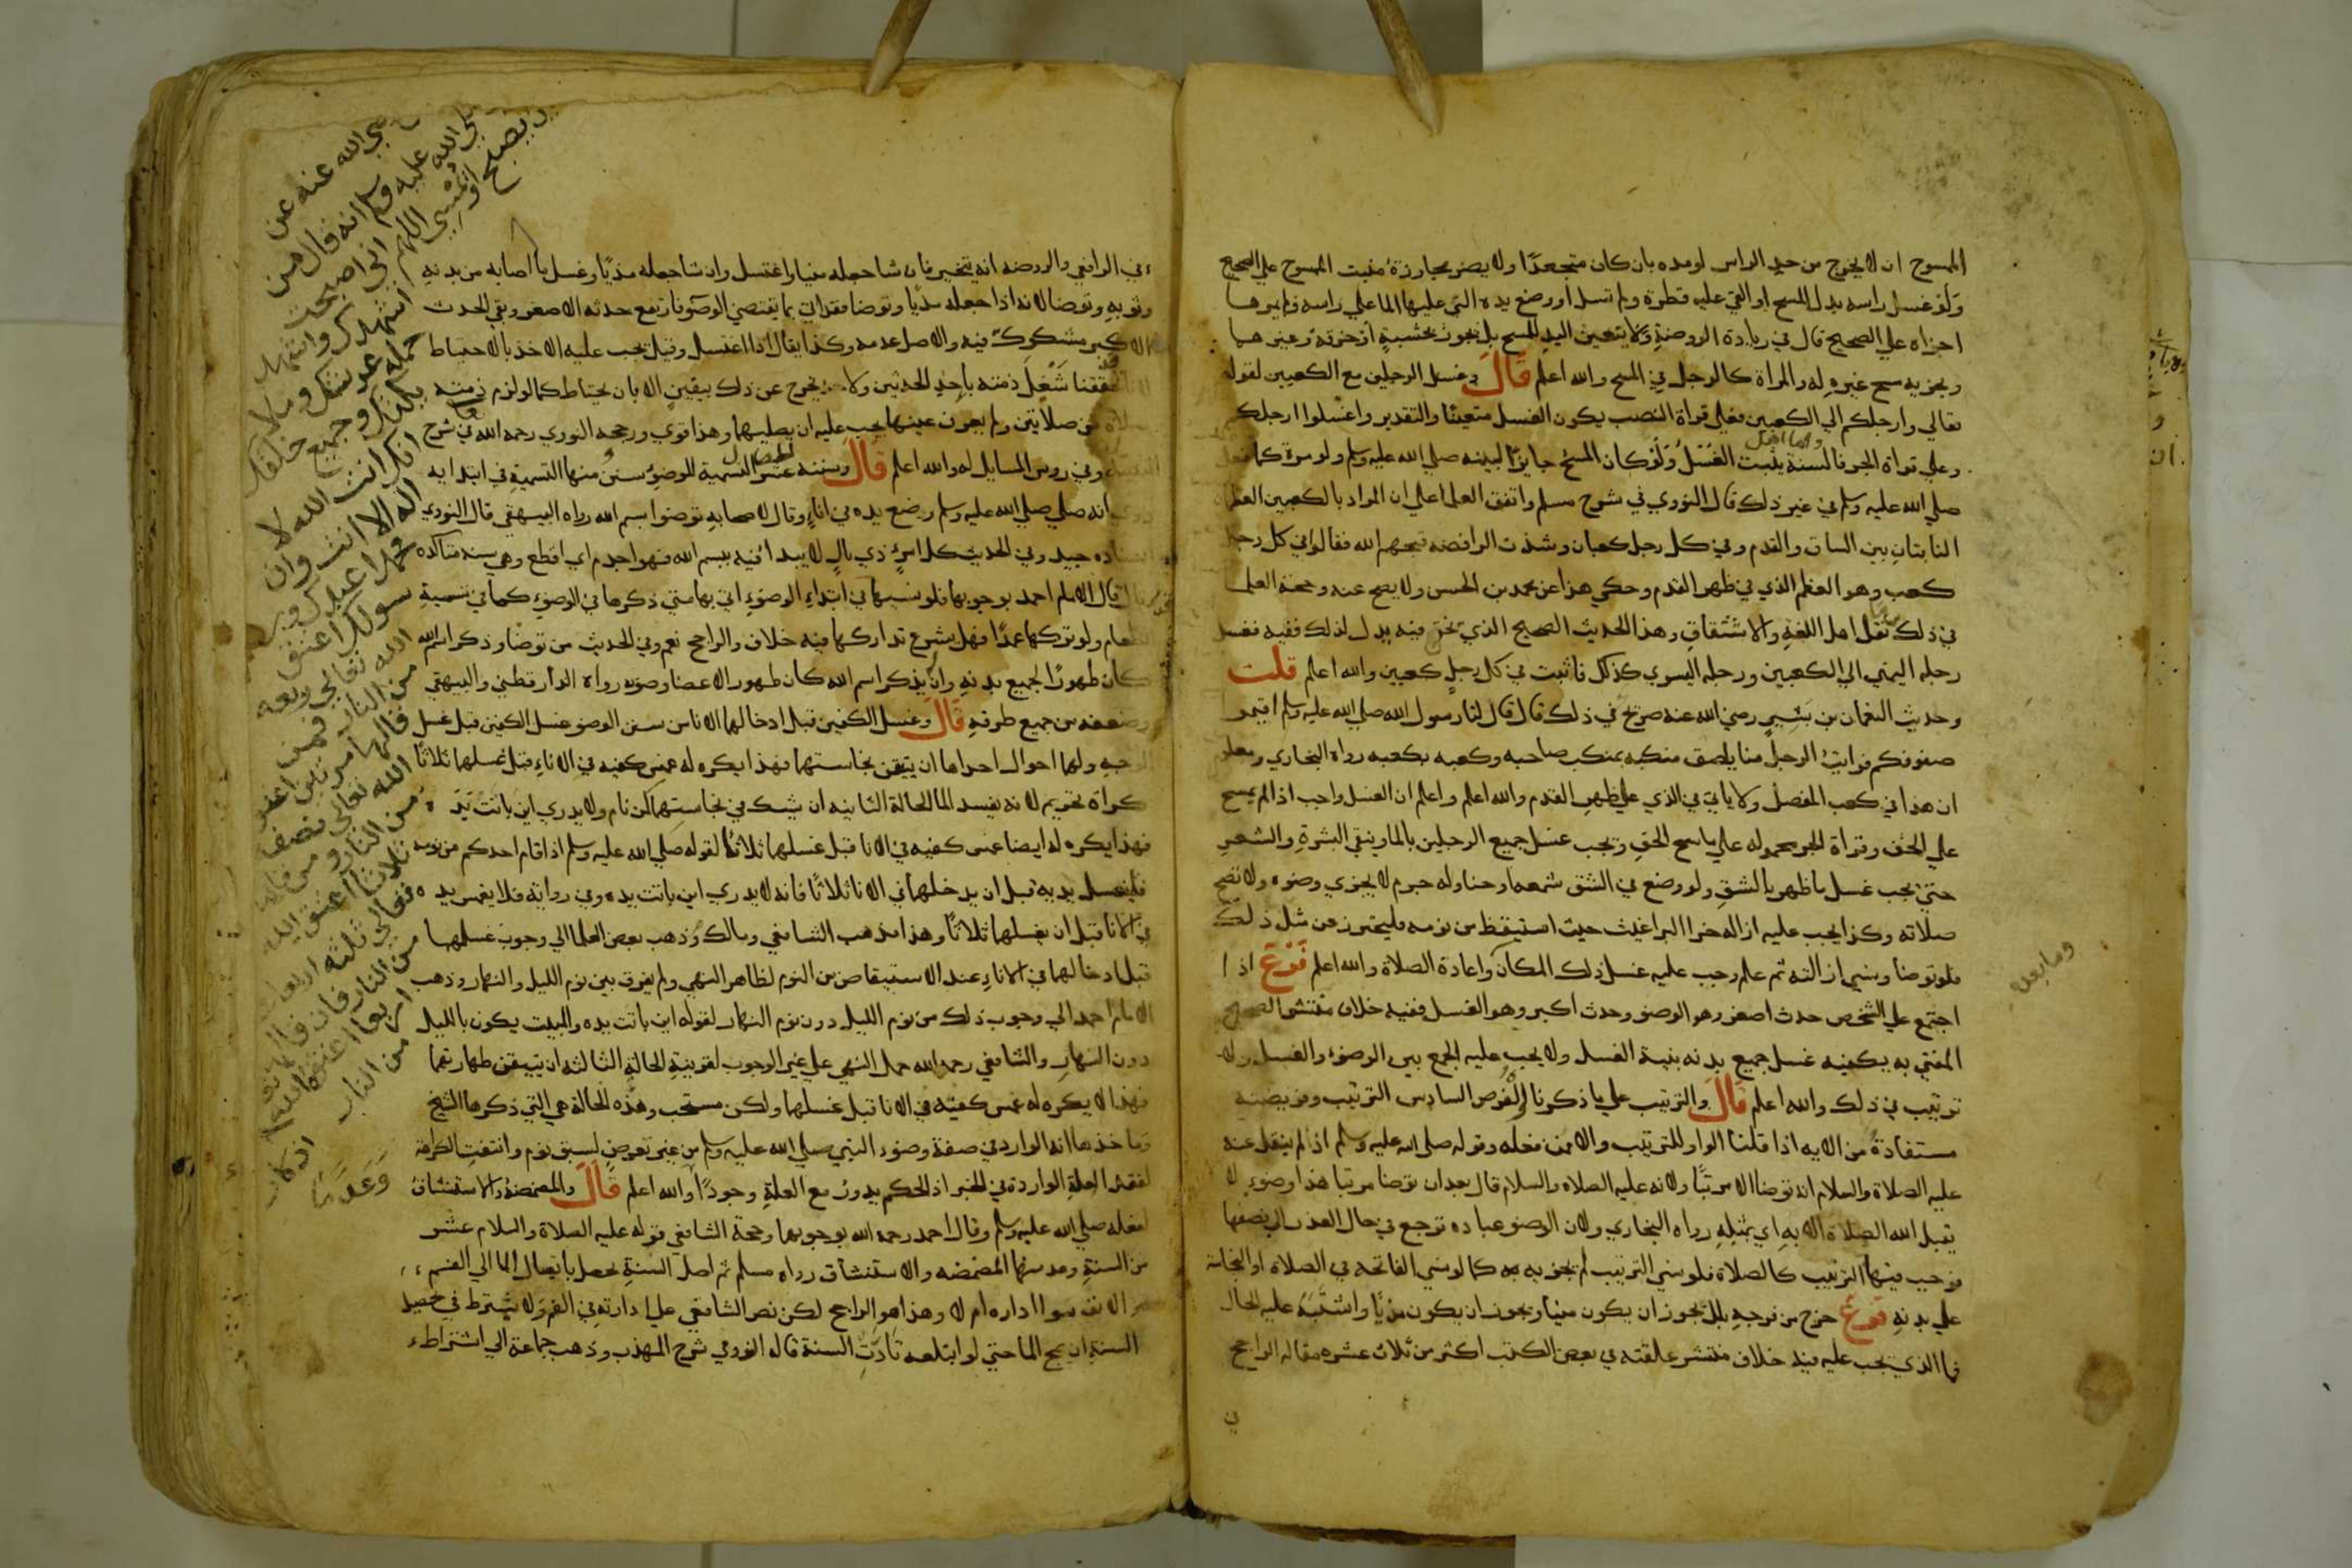 الممسوح ان لا يخرج من حد الراس لو مده بان كان متجعدا ولا يضر مجاوزة منبت الممسوح علي الصحيح
ولو غسل راسه بدل المسح او القي عليه قطرة ولم تسل او وضع يده التي عليها الما علي راسه ولم يمرها
اجزاه علي الصحيح قال في زيادة الروضة ولا يتعين اليد للمسح بل يجوز بخشبة او خرقة وغيرهما
ويجزيه مسح غيره له والمراة كالرجل في المسح والله اعلم قال وغسل الرجلين مع الكعبين لقوله
تعالي وارجلكم الي الكعبين فعلي قراة النصب يكون الغسل متعينا والتقدير واغسلوا ارجلكم
وعلي قراة الجر فالسنة بينت الغسل ولو كان المسح جايزا لبينه صلي الله عليه وسلم ولو مرة كما فعل
صلي الله عليه وسلم في غير ذلك قال النووي في شرح مسلم واتفق العلما علي ان المراد بالكعبين العظمان
الناتيان بين الساق والقدم وفي كل رجل كعبان وشذت الرافضه قبحهم الله فقالوا في كل رجل
كعب وهو العظم الذي في ظهر القدم وحكي هذا عن محمد بن الحسن ولا يصح عنه وحجة العلما
في ذلك نقل اهل اللغة والاشتقاق وهذا الحديث الصحيح الذي نحن فيه يدل لذلك ففيه فغسل
رجله اليمني الي الكعبين ورجله اليسري كذلك فاثبت في كل رجل كعبين والله اعلم قلت
وحديث النعمان بن بشير رضي الله عنه صريح في ذلك قال قال لنا رسول الله صلي الله عليه وسلم اقيموا
صفوفكم فرايت الرجل منا يلصق منكبه بمنكب صاحبه وكعبه بكعبه رواه البخاري ومعلوم
ان هذا في كعب المفصل ولا ياتي في الذي علي ظهر القدم والله اعلم واعلم ان الغسل واجب اذا لم يمسح
علي الخف وقراة الجر محموله علي ماسح الخف ويجب غسل جميع الرجلين بالما وينقي البشرة والشعر
حتي يجب غسل ما ظهر بالشق ولو وضع في الشق شمعه او حنا وله جرم لا يجزي وضوه ولا تصح
صلاته وكذا يجب عليه ازاله خرا البراغيث حيث استيقظ من نومه فليحترز عن مثل ذلك
فلو توضا ونسي ازالته ثم علم وجب عليه غسل ذلك المكان واعادة الصلاة والله اعلم فرع اذا
اجتمع علي الشخص حدث اصغر وهو الوضو وحدث اكبر وهو الغسل ففيه خلاف منتشر الصحيح
المفتي به يكفيه غسل جميع بدنه بنية الغسل ولا يجب عليه الجمع بين الوضوء والغسل ولا
ترتيب في ذلك والله اعلم قال والترتيب علي ما ذكرنا الفرض السادس الترتيب وفرضيته
مستفادة من الايه اذا قلنا الواو للترتيب والا فمن فعله وقوله صلي الله عليه وسلم اذ لم ينقل عنه
عليه الصلاة والسلام انه توضا الا مرتبا ولانه عليه الصلاه والسلام قال بعد ان توضا مرتبا هذا وضوء لا
يقبل الله الصلاة الا به اي بمثله رواه البخاري ولان الوضو عباده ترجع في حال العذر الي نصفها
فوجب فيها الترتيب كالصلاة فلو نسي الترتيب لم يجزيه كما لو نسي الفاتحه في الصلاة او النجاسة
علي بدنه فرع خرج من فرجه بلل يجوز ان يكون منيا ويجوز ان يكون مذيا واشتبه عليه الحال
فما الذي يجب عليه فيه خلاف منتشر علقته في بعض الكتب اكثر من ثلاث عشره مقاله الراجح
في
وما بعده
في الرافعي والروضه انه يتخير فان شا جعله منيا واغتسل وان شا جعله مذيا وغسل ما اصابه من بدنه
وثوبه وتوضا لانه اذا جعله مذيا وتوضا فقد اتي بما يقتضي الوضو فارتفع حدثه الاصغر وبقي الحدث
الاكبر مشكوك فيه والاصل عدمه وكذا يقال اذا اغتسل وقيل يجب عليه الاخذ بالاحتياط
شغل ذمته باحد الحدثين ولا يخرج عن ذلك بيقين الا بان يحتاط كما لو لزم ذمته
صلاة من صلاتين ولم يعرف عينها يجب عليه ان يصليهما وهذا قوي ورجحه النووي رحمه الله في شرح
وفي روس المسايل له والله اعلم قال وسننه عشر التسمية للوضوء سنن منها التسمية في ابتدايه
انه صلي الله عليه وسلم وضع يده في اناء وقال لاصحابه توضوا بسم الله رواه البيهقي قال النووي
جيد وفي الحديث كل امر ذي بال لا يبدا فيه ببسم الله فهو اجذم اي اقطع وهي سنه متاكده
قال الامام احمد بوجوبها فلو نسيها في ابتداء الوضوء اتي بها متي ذكرها في الوضوء كما في تسمية
الطعام ولو تركها عمدا فهل يشرع تداركها فيه خلاف والراجح نعم وفي الحديث من توضا وذكر اسم الله
كان طهورا لجميع بدنه وان لم يذكر اسم الله كان طهور الاعضا وضوه رواه الدارقطني والبيهقي
وضعفه من جميع طرقه قال وغسل الكفين قبل ادخالهما الانا من سنن الوضو غسل الكفين قبل غسل
الوجه ولهما احوال احداها ان يتيقن نجاستهما فهذا يكره له غمس كفيه في الاناء قبل غسلهما ثلاثا
كراة تحريم لانه يفسد الما الحالة الثانيه ان يشك في نجاستهما كمن نام ولا يدري اين باتت يد
فهذا يكره له ايضا غمس كفيه في الانا قبل غسلهما ثلاثا لقوله صلي الله عليه وسلم اذا قام احدكم من نومه
فليغسل يديه قبل ان يدخلهما في الانا ثلاثا فانه لا يدري اين باتت يده وفي روايه فلا يغمس يده
في الانا قبل ان يغسلها ثلاثا وهذا مذهب الشافعي ومالك وذهب بعض العلما الي وجوب غسلهما
قبل ادخالهما في الاناء عند الاستيقاض من النوم لظاهر النهي ولم يفرق بين نوم الليل والنهار وذهب
الامام احمد الي وجوب ذلك من نوم الليل دون نوم النهار لقوله اين باتت يده والمبيت يكون بالليل
دون النهار والشافعي رحمه الله حمل النهي علي غير الوجوب لقرينة الحالة الثالثه ان يتيقن طهارتهما
فهذا لا يكره له غمس كفيه في الانا قبل غسلهما ولكن مستحب وهذه الحالة هي التي ذكرها الشيخ
وماخذها انه الوارد في صفة وضوء النبي صلي الله عليه وسلم من غير تعرض لسبق نوم وانتفت الكراهة
لفقد العلة الواردة في الخبر اذ الحكم يدور مع العلة وجودا والله اعلم قال والمضمضة والاستنشاق
لفعله صلي الله عليه وسلم وقال احمد رحمه الله بوجوبهما وحجة الشافعي قوله عليه الصلاة والسلام عشر
من السنة وعد منها المضمضه والاستنشاق رواه مسلم ثم اصل السنة يحصل بايصال الما الي الفم
الانف سوا اداره ام لا وهذا هو الراجح لكن نص الشافعي علي ادارته في الفم ولا يشترط في تحصيل
السنة ان يمج الما حتي لو ابتلعه تادت السنة قاله النووي في شرح المهذب وذهب جماعة الي اشتراطه
الله عنه عن
الله عليه وسلم انه قال من
يصبح او يمسي اللهم اني اصبحت
اشهدك واشهد
حملة عرشك وملائكتك
وجميع خلقك
انك انت الله لا
اله الا انت وان
محمدا عبدك و
رسولك اعتق
الله تعالي ربعه
من النار فمن
قالها مرتين اعتق
الله تعالي نصفه
من النار ومن قالها
ثلاثا اعتق الله
تعالي ثلثة ارباعه
من النار فان قالها
اربعا اعتقه الله
من النار